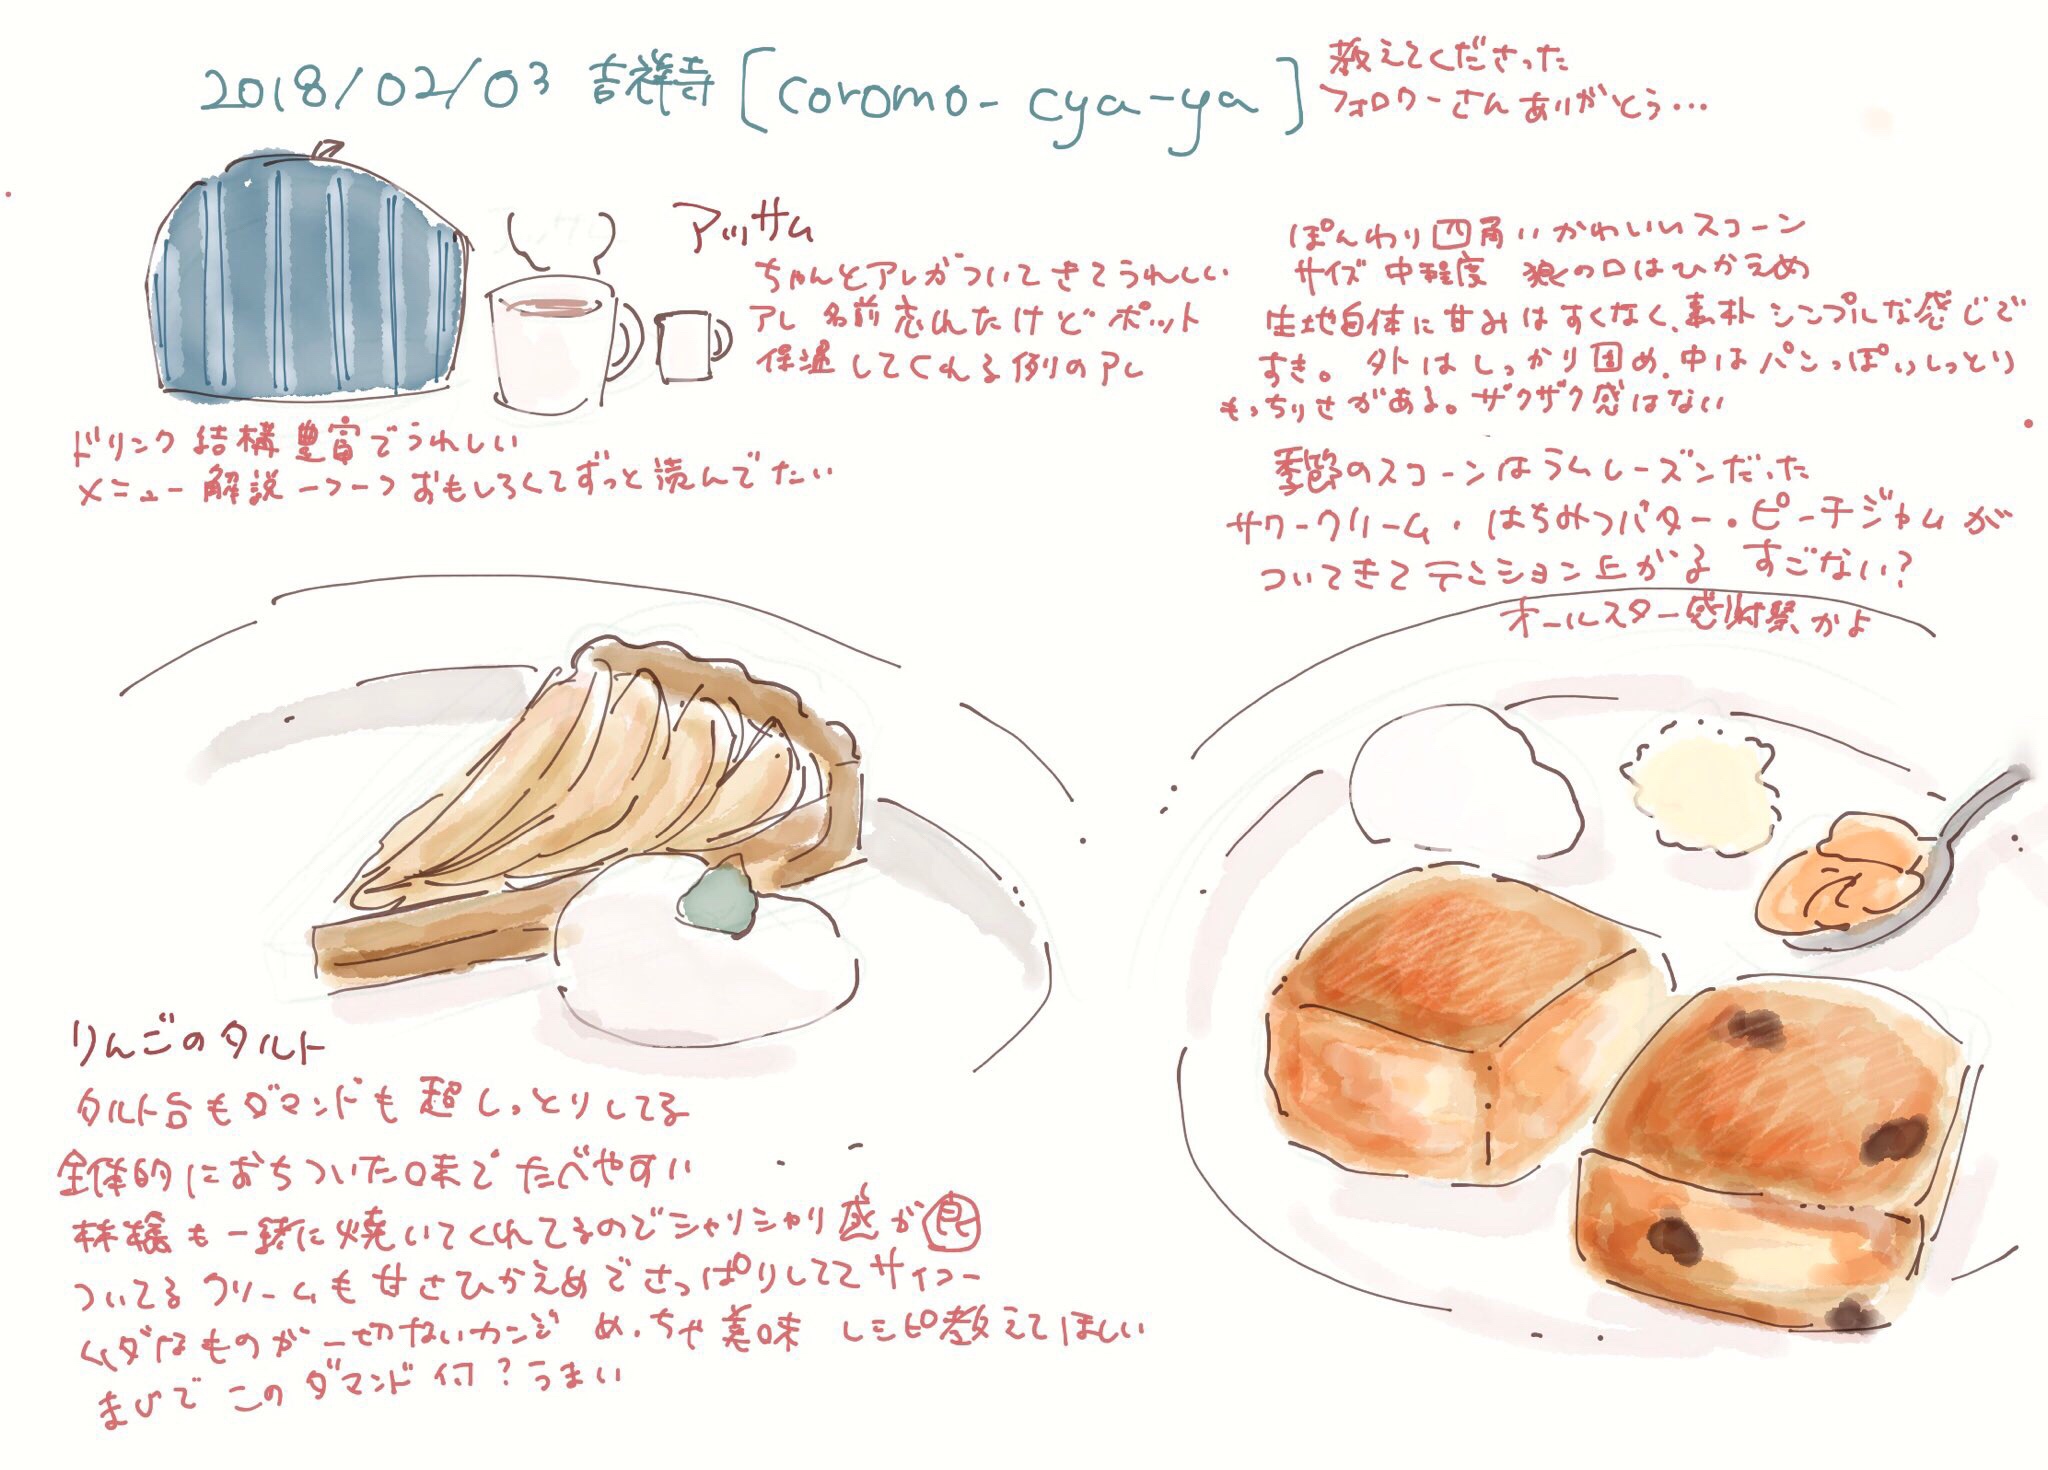 2018/02/03 吉祥寺 [coromo-cya-ya]
教えてくださった
フォロワーさんありがとう…
アッサム
ちゃんとアレがついてきてうれしい
アレ 名前忘れたけどポット
保温してくれる例のアレ
ドリンク結構豊富でうれしい
メニュー解説一つ一つおもしろくてずっと読んでたい
ぽんわり四角いかわいいスコーン
サイズ 中程度 狼の口はひかえめ
生地自体に甘みはすくなく、素朴 シンプルな感じで
すき。 外はしっかり固め、中はパンっぽいしっとり
もっちりさがある。ザクザク感はない
季節のスコーンはラムレーズンだった
サワークリーム・はちみつバター・ピーチジャムが
ついてきてテンション上がる すごない?
オールスター感謝祭かよ
りんごのタルト
タルト台もダマンドも超しっとりしてる
全体的におちついた味でたべやすい
林檎も一緒に焼いてくれてるのでシャリシャリ感が良
ついてるクリームも甘さひかえめでさっぱりしててサイコー
ムダなものが一切ないカンジ めっちゃ美味 レシピ教えてほしい
まじで このダマンド何?うまい